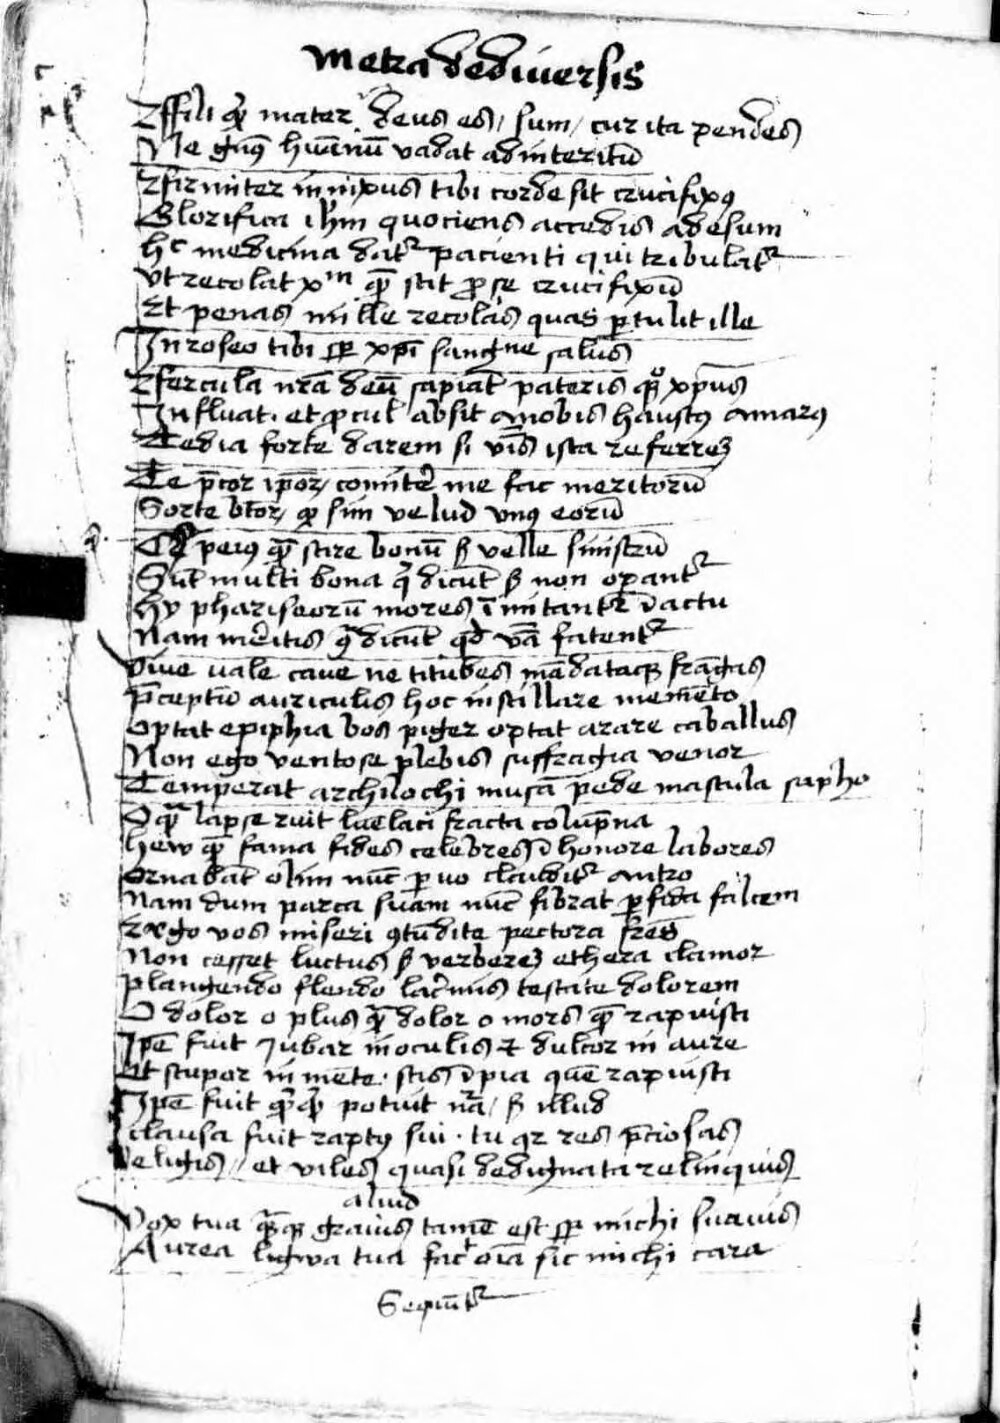 Metra de diuersis
Fili qr mater deus es / sum / cur ita pendes
Ne gn9 huanū vadat ad interitū
firmiter innixus tibi corde sit crucifix9
Glorifica ihm quociens accedis ad esum
hc medicina dat2 pacienti qui tribulat2
Vt recolat xpm qm scit p se crucifixū
Et penas mille recolas quas ptulit ille
In roseo tibi sp xpi sangne salus
fercula nra deū sapiat pateris qo xpus
Influat . et procul absit a nobis haust9 amar9
Tedia forte darem si vis ista referrez
Te pcor ipor / comiter me fac meritorū
Sorte btor / qo sim velud vn9 eorū
peius qm scire bonū s velle sinistrū
Sut multi bona q dicut s non operant2
hy phariseorū mores imitantr i actu
Nam meritis q dicut qd va fatent2
Viue vale caue ne titubes mādataq frāgas
pceptū auriculis hoc instillare memēto
Optat epiphia bos piger optat arare caballus
Non ego ventose plebis suffragia venor
Temperat archilochi musā pede mascula sapho
O qm lapse ruit lue laci fracta colupna
hew qm fama fides celebres i honore labores
Ornabāt olim nuc puo claudit2 antro
Nam dum parca suam nuc fibrat pfida falcem
Ergo vos miseri 9tūdite pectora fres
Non cesset luctus s verberez ethera clamor
plangendo flendo lacrimis testate dolorem
O dolor o plus qm dolor o mors qm rapuisti
Ipe fuit Jubar in oculis et dulcor in aure
Et stupor in mente . scis ipia quē rapuisti
Ipe fuit qrqr potuit nra / s illud
clausa fuit rapt9 sui . tu qr res pciosas
eligis // et viles quasi dedignata relinquis
aliud
Vox tua qmq grauis tame est sp michi suauis
Aurea lingwa tua fac oia sic michi cara
Sequūt2